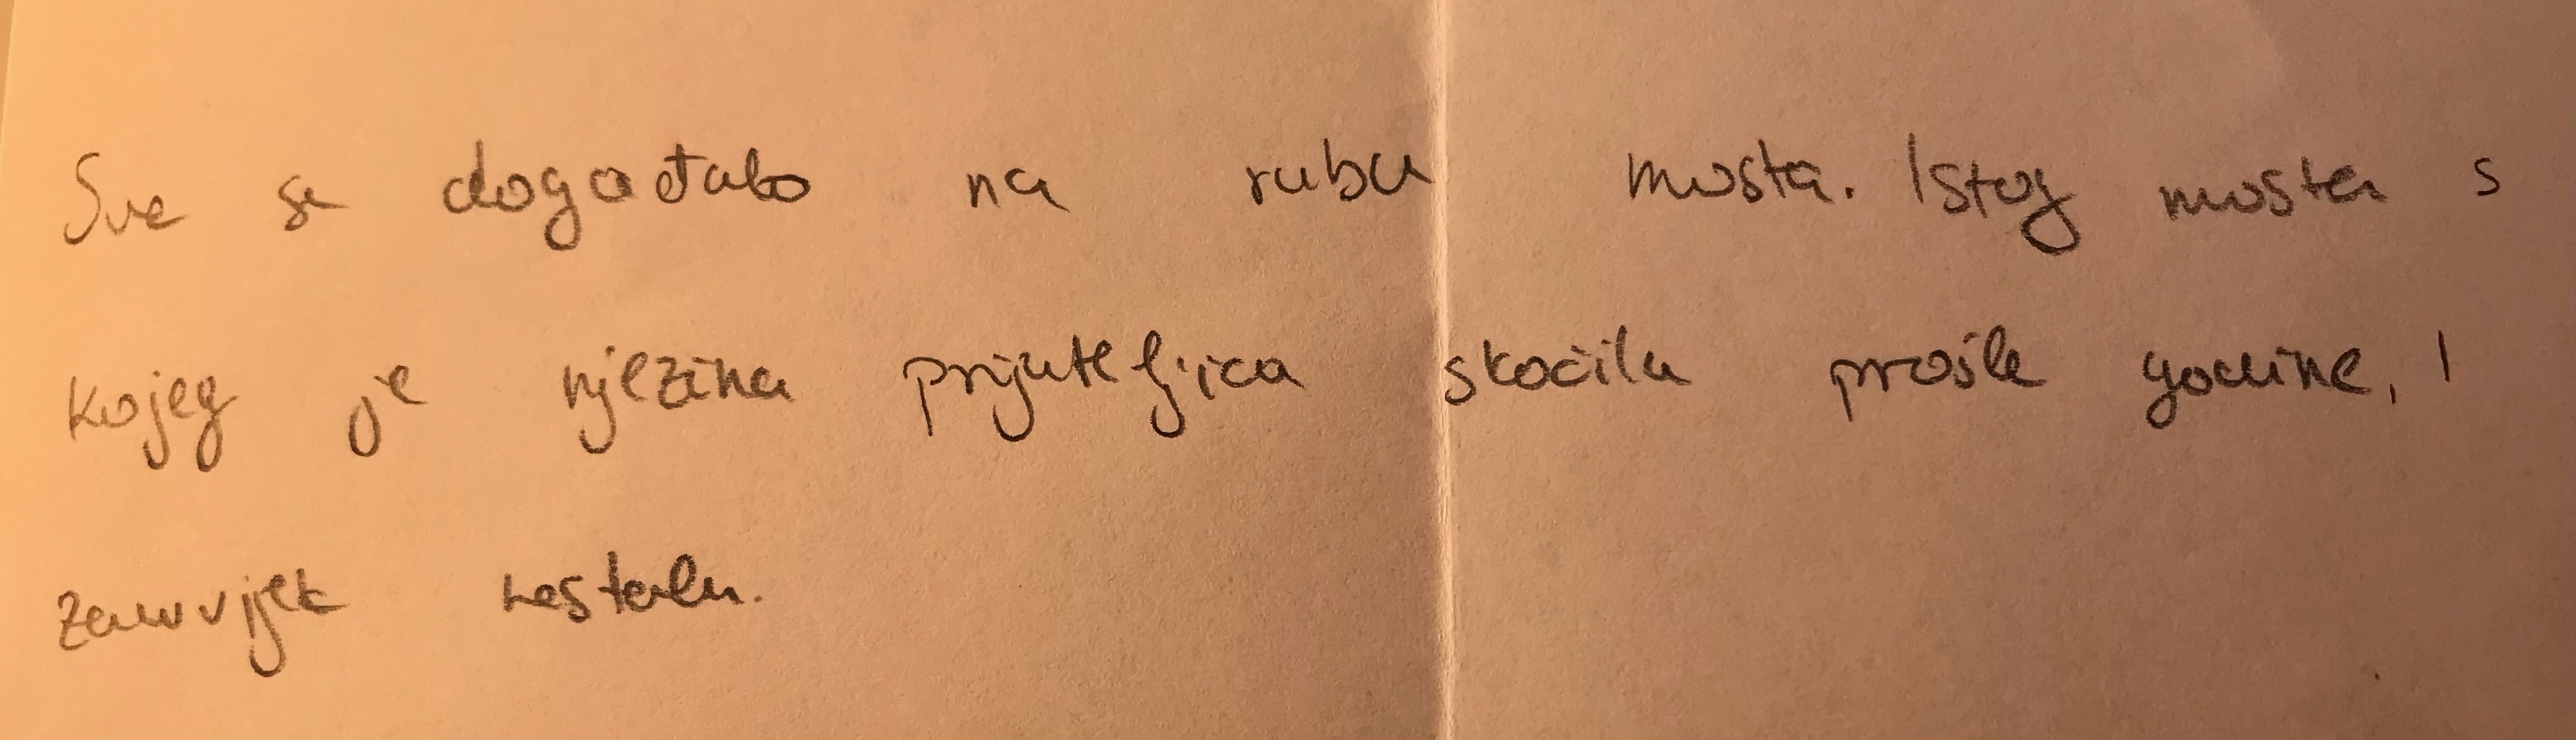 Sve se događalo na rubu mosta. Istog mosta s
kojeg je njezina prijateljica skočila prošle godine, I
zauvijek nestala.